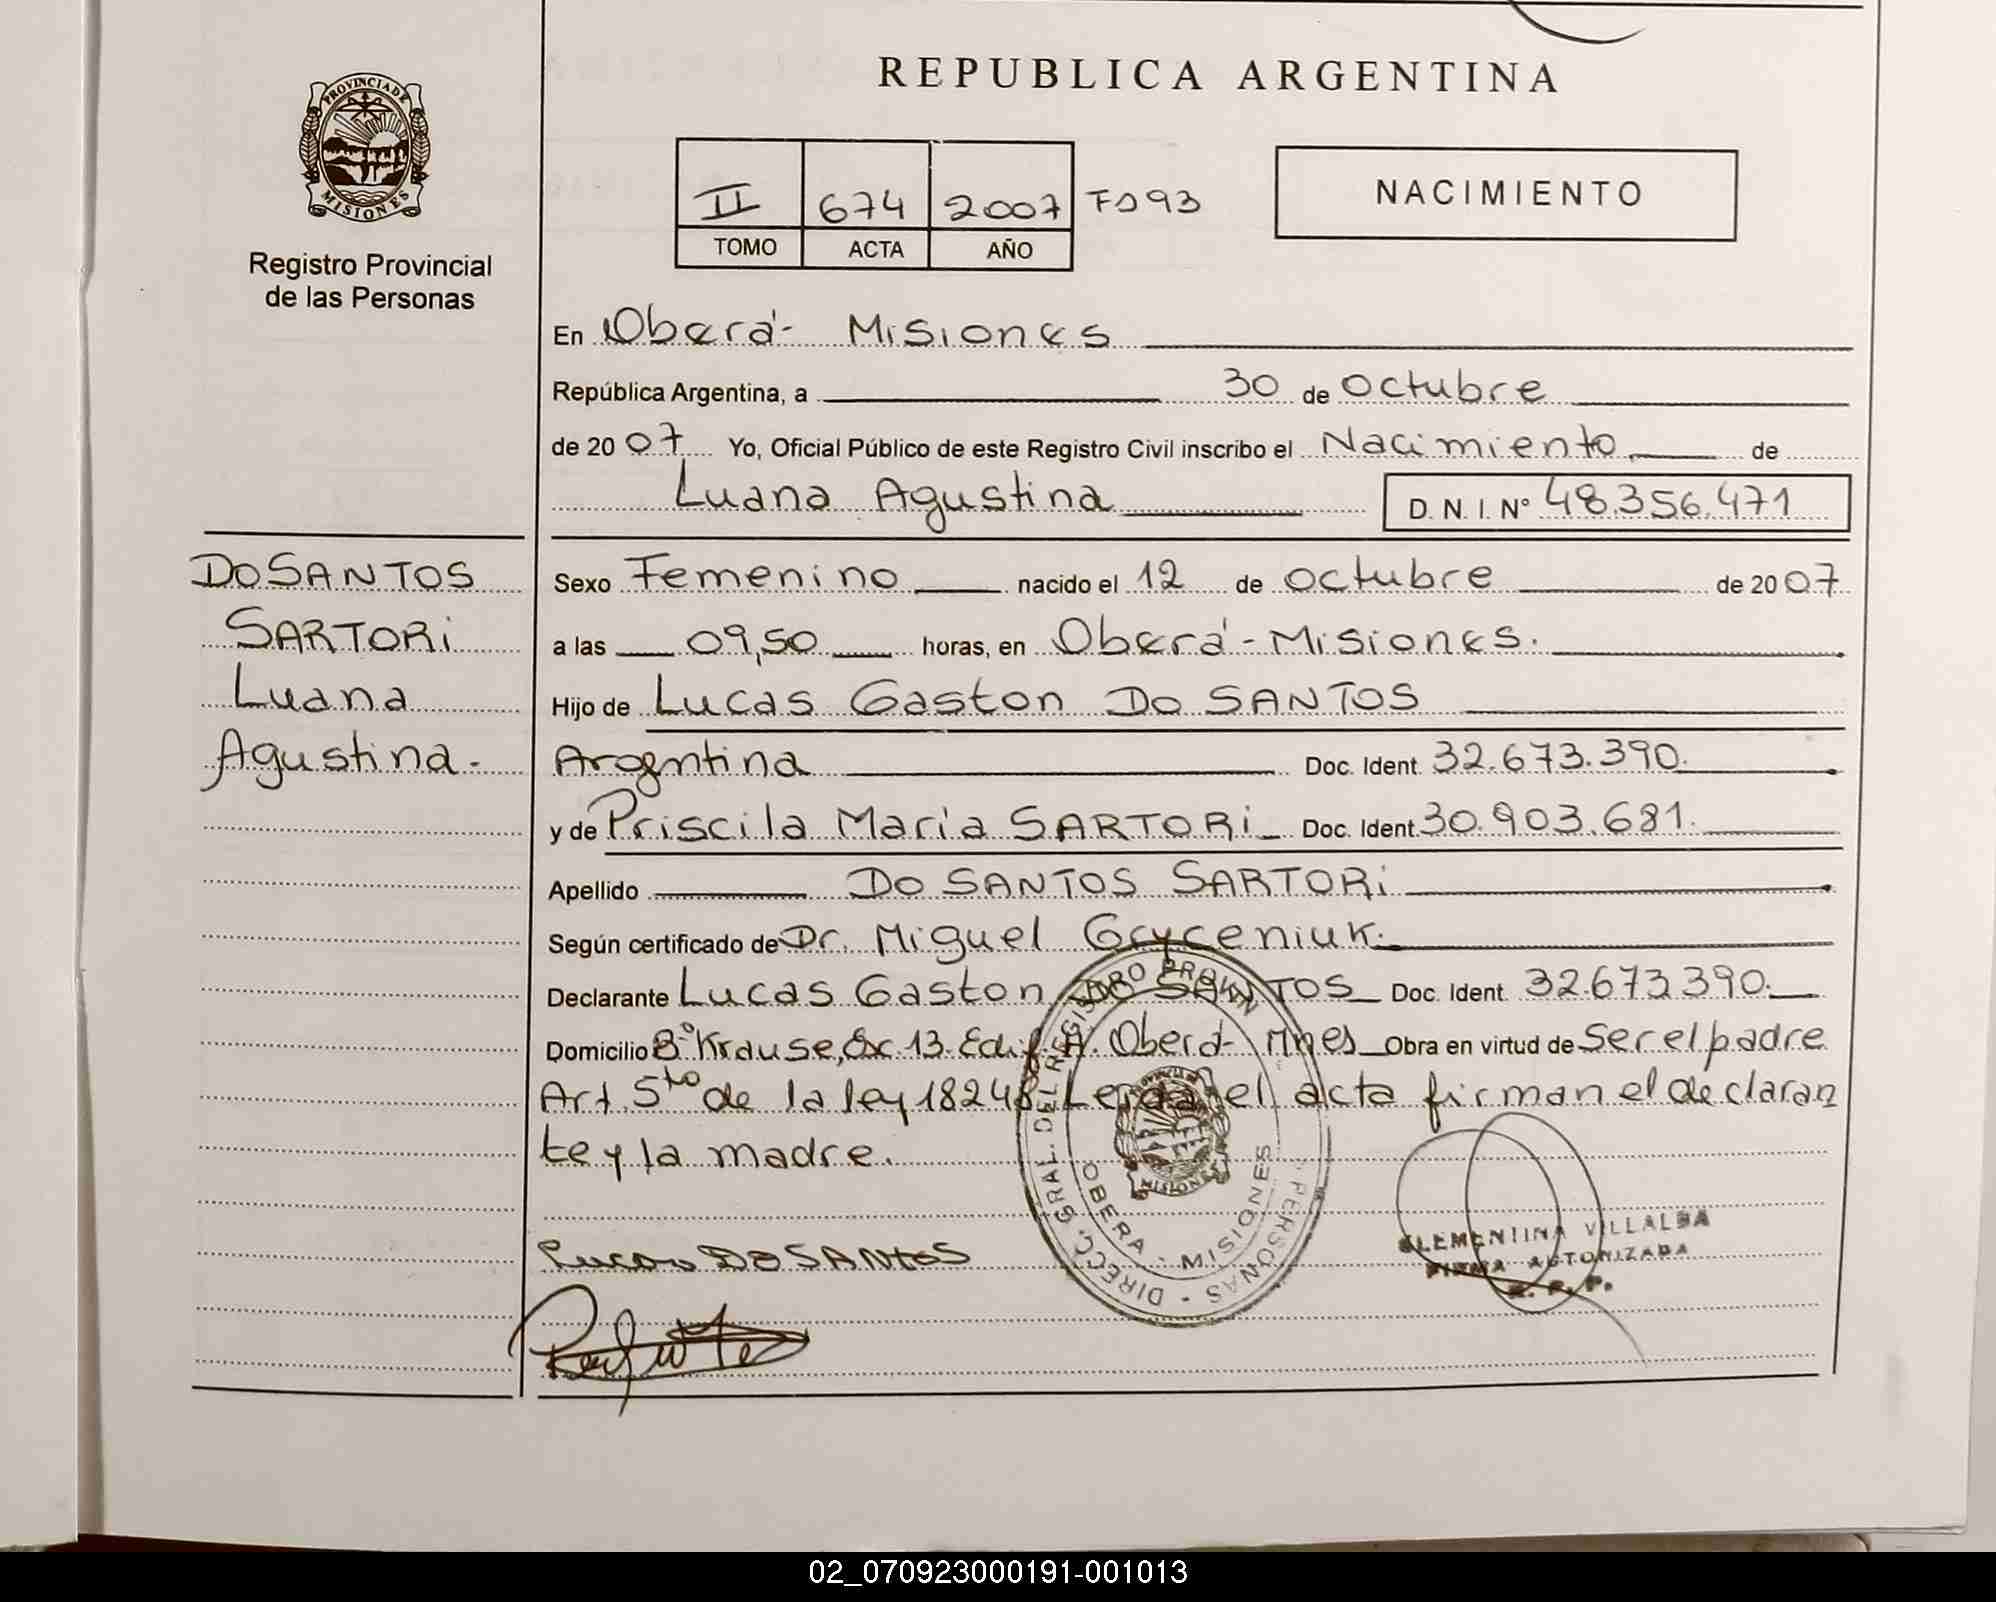 REPUBLICA ARGENTINA
PROVINCIA DE MISIONES
Registro Provincial
de las Personas
II 674 2007 Fº 93
TOMO ACTA AÑO
NACIMIENTO
En Oberá - Misiones
República Argentina, a 30 de octubre
de 2007 Yo, Oficial Público de este Registro Civil inscribo el Nacimiento de
Luana Agustina D. N. I. Nº 48.356.471
DO SANTOS
SARTORI
Luana
Agustina.-
Sexo Femenino nacido el 12 de octubre de 2007
a las 09,50 horas, en Oberá - Misiones.
Hijo de Lucas Gaston DO SANTOS
Argentina Doc. Ident. 32.673.390.
y de Priscila María SARTORI Doc. Ident. 30.903.681.
Apellido DO SANTOS SARTORI
Según certificado de Dr. Miguel Gryceniuk.
Declarante Lucas Gaston DO SANTOS Doc. Ident. 32.673390.
Domicilio Bº Krause, Esc. 13. Edif. A. Oberá - Mnes Obra en virtud de Ser el padre
Art. 5to de la ley 18248. Leida el acta firman el declaran
te y la madre.
DIRECC. GRAL. DEL REGISTRO PROVIN PERSONAS
OBERA - MISIONES
Lucas DO SANTOS
CLEMENTINA VILLALBA
FIRMA AUTORIZADA
R. P. P.
02_070923000191-001013